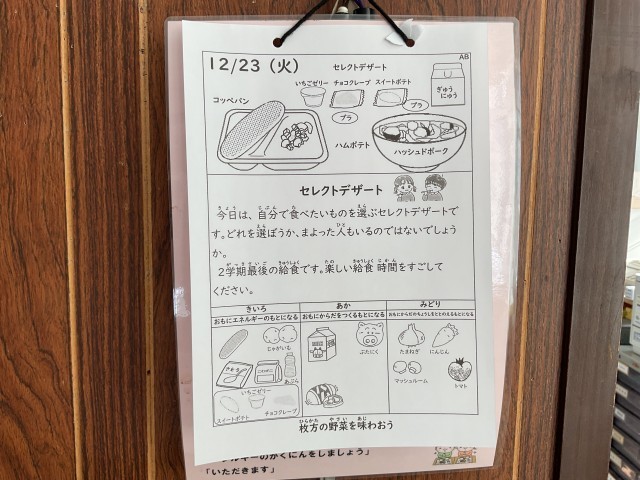 12/23（火）
AB
セレクトデザート
いちごゼリー
チョコクレープ
スイートポテト
ぎゅうにゅう
プラ
プラ
コッペパン
ハムポテト
ハッシュドポーク
セレクトデザート
今日は、自分で食べたいものを選ぶセレクトデザートで
す。どれを選ぼうか、まよった人もいるのではないでしょう
か。
2学期最後の給食です。楽しい給食時間をすごして
ください。
きいろ
あか
みどり
おもにエネルギーのもとになる
おもにからだをつくるもとになる
おもにからだのちょうしをととのえるもとになる
じゃがいも
ぶたにく
たまねぎ
にんじん
あぶら
マッシュルーム
トマト
いちごゼリー
スイートポテト
チョコクレープ
枚方の野菜を味わおう
ルギーのかくにんをしましょう」
「いただきます」